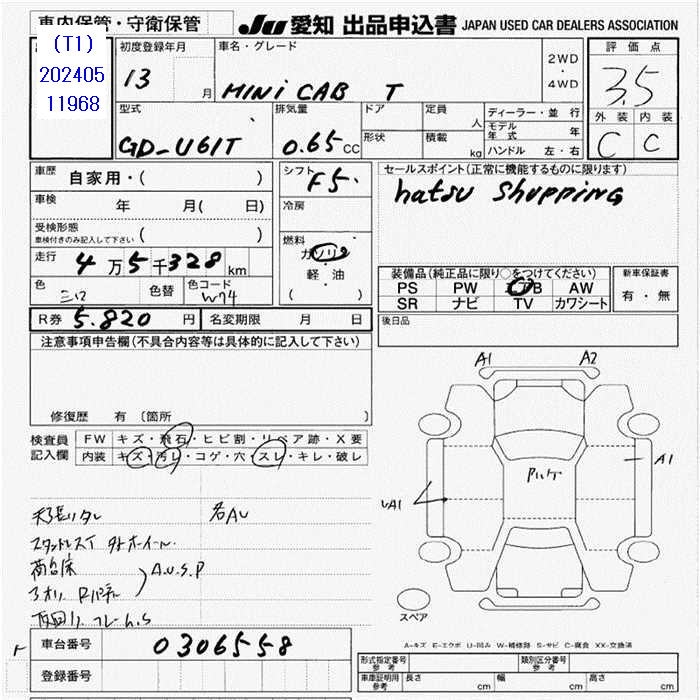 車内保管・守衛保管
JU 愛知 出品申込書 JAPAN USED CAR DEALERS ASSOCIATION
(T1)
202405
11968
初度登録年月
13 月
車名・グレード
MINI CAB T
2WD
・
4WD
評価点
3.5
外装 内装
C C
型式
GD-U61T
排気量
0.65 CC
ドア
形状
定員 人
積載 kg
ディーラー・並行
モデル年式 年
ハンドル 左・右
車歴 自家用・( )
シフト F5
セールスポイント(正常に機能するものに限ります)
hatsu Shupping
車検 年 月( 日)
冷房
受検形態
車検付きのみ記入して下さい ( )
燃料
ガソリン
・
軽・油
( )
走行 4万5千328km
装備品(純正品に限り○をつけてください)
PS PW エアB AW
SR ナビ TV カワシート
新車保証書
有・無
色 色替 色コード
W74
R券 5.820 円 名変期限 月 日
後日品
注意事項申告欄(不具合内容等は具体的に記入して下さい)
修復歴 有 〔箇所 〕
検査員記入欄
FW キズ・飛石・ヒビ割・リペア跡・X要
内装 キズ・汚レ・コゲ・穴・スレ・キレ・破レ
A1 A2
A1
UA1
天張りタレ 名AU
荷台床
A.U.S.P
スペア
A-キズ E-エクボ U-凹み W-補修跡 S-サビ C-腐食 XX-交換済
車台番号 0306558
登録番号
形式指定番号 参考 類別区分番号 参考
車庫証明用 参考 長さ cm 幅 cm 高さ cm